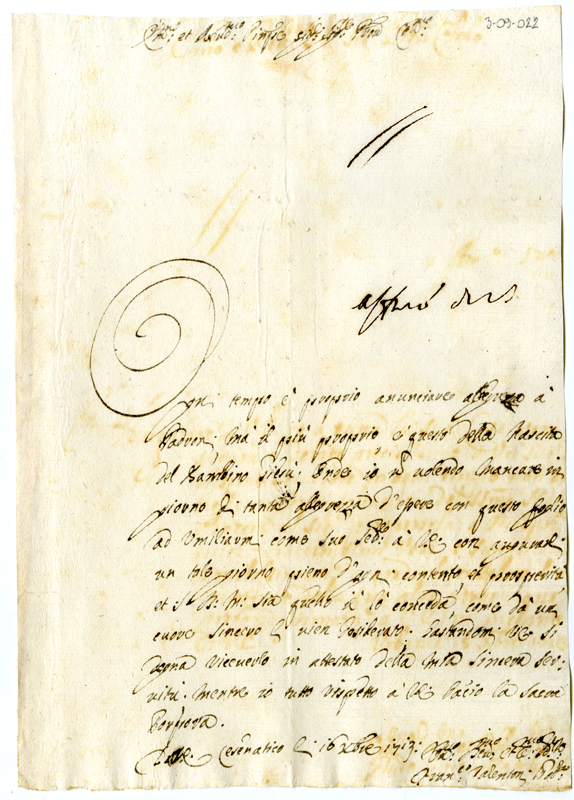 3-09-022
Ogni tempo è proprio anunciare allegrezza à
Padroni; mà il più proprio è questo della Nascita
del Bambino Giesù; Onde io non volendo mancare in
giorno di tanta allegrezza d'essere con questo foglio
ad umiliarmi come suo à VE con augurarli
un tale giorno pieno d'ogni contento, et prosperità
et S. D. M. sia quello che lo conceda, come dà un
cuore sincero li vien desiderato. Bastandomi VE si
degna riceverlo in attestato della mia sincera ser-
vitù. mentre io tutto rispetto à VE bacio la Sacra
Porpora.
Cesenatico li 16 Xbre 1713: